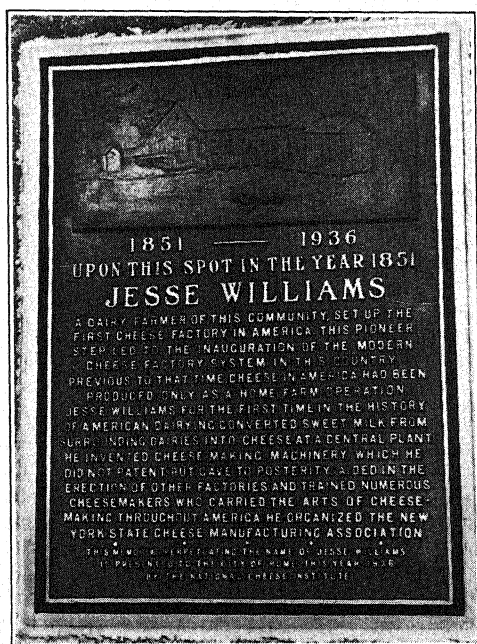 1851 — 1936
UPON THIS SPOT IN THE YEAR 1851
JESSE WILLIAMS
A DAIRY FARMER OF THIS COMMUNITY, SET UP THE
FIRST CHEESE FACTORY IN AMERICA. THIS PIONEER
STEP LED TO THE INAUGURATION OF THE MODERN
CHEESE FACTORY SYSTEM IN THIS COUNTRY
PREVIOUS TO THAT TIME CHEESE IN AMERICA HAD BEEN
PRODUCED ONLY AS A HOME FARM OPERATION
JESSE WILLIAMS FOR THE FIRST TIME IN THE HISTORY
OF AMERICAN DAIRYING CONVERTED SWEET MILK FROM
SURROUNDING DAIRIES INTO CHEESE AT A CENTRAL PLANT
HE INVENTED CHEESE MAKING MACHINERY WHICH HE
DID NOT PATENT BUT GAVE TO POSTERITY, AIDED IN THE
ERECTION OF OTHER FACTORIES AND TRAINED NUMEROUS
CHEESEMAKERS WHO CARRIED THE ARTS OF CHEESE-
MAKING THROUGHOUT AMERICA HE ORGANIZED THE NEW
YORK STATE CHEESE MANUFACTURING ASSOCIATION
THIS MEMORIAL PERPETUATING THE NAME OF JESSE WILLIAMS
IS PRESENTED TO THE CITY OF ROME THIS YEAR 1936
BY THE NATIONAL CHEESE INSTITUTE